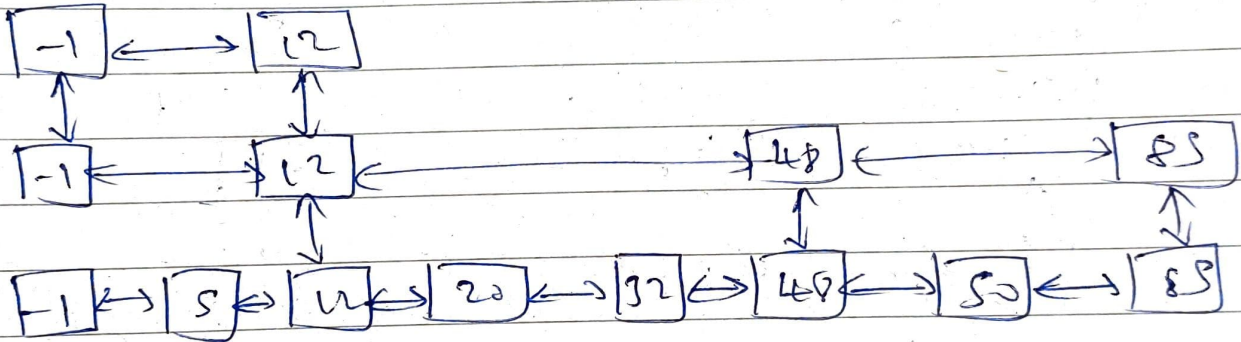 -1 12
-1 12 48 85
-1 5 12 20 32 48 50 85